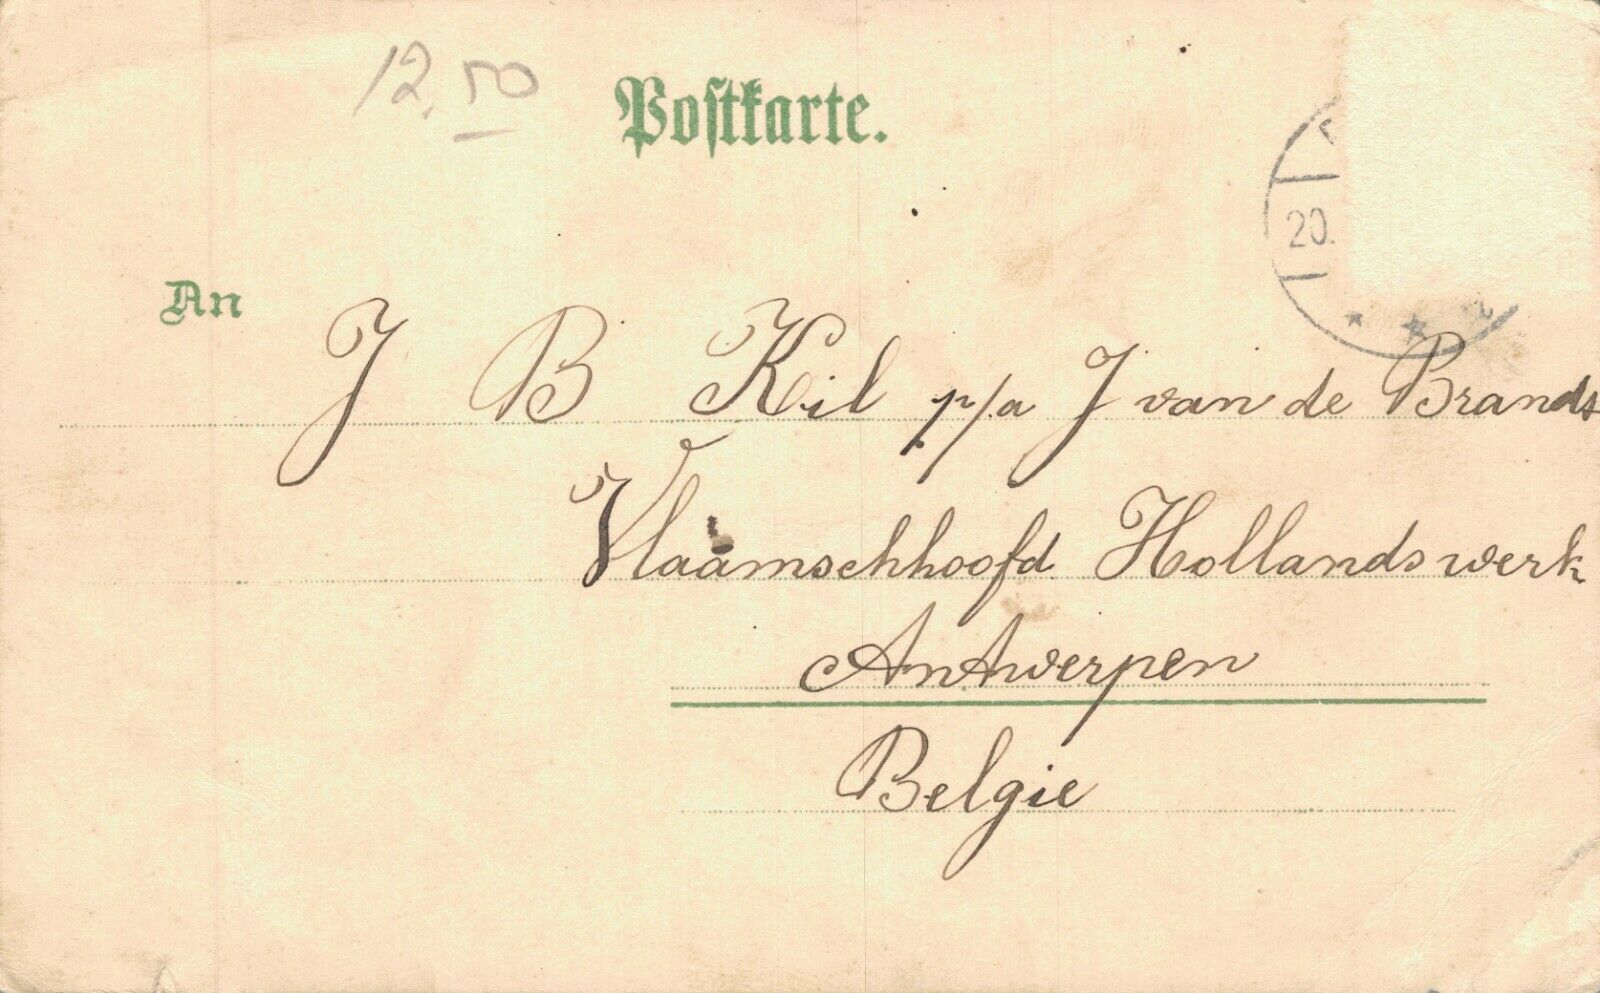 12.50
Postkarte.
20.
An
J B Kil p/a J van de Brands
Vlaamschhoofd Hollandswerk
Antwerpen
Belgie